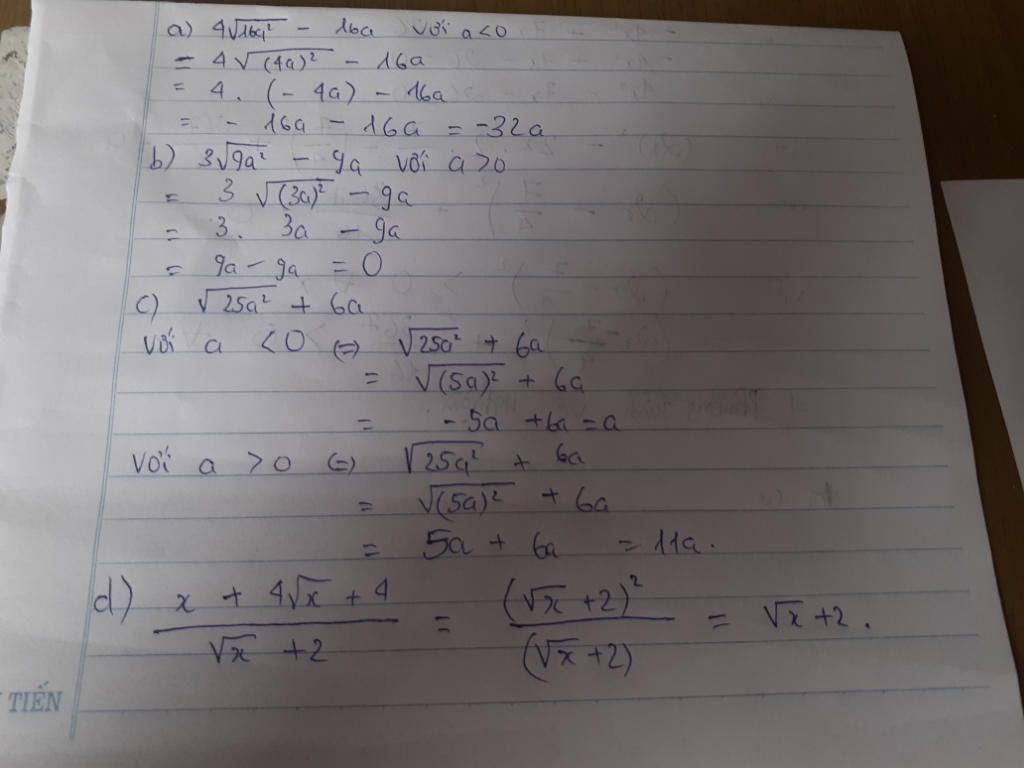 a) 4√16a² - 16a với a<0
= 4√(4a)² - 16a
= 4 . (- 4a) - 16a
= - 16a - 16a = -32a
b) 3√9a² - 9a với a>0
= 3 √(3a)² - 9a
= 3. 3a - 9a
= 9a - 9a = 0
c) √25a² + 6a
với a <0 (=) √25a² + 6a
= √(5a)² + 6a
= -5a +6a = a
với a >0 (=) √25a² + 6a
= √(5a)² + 6a
= 5a + 6a = 11a.
d) x + 4√x + 4 / √x + 2 = (√x + 2)² / (√x + 2) = √x + 2.
TIẾN